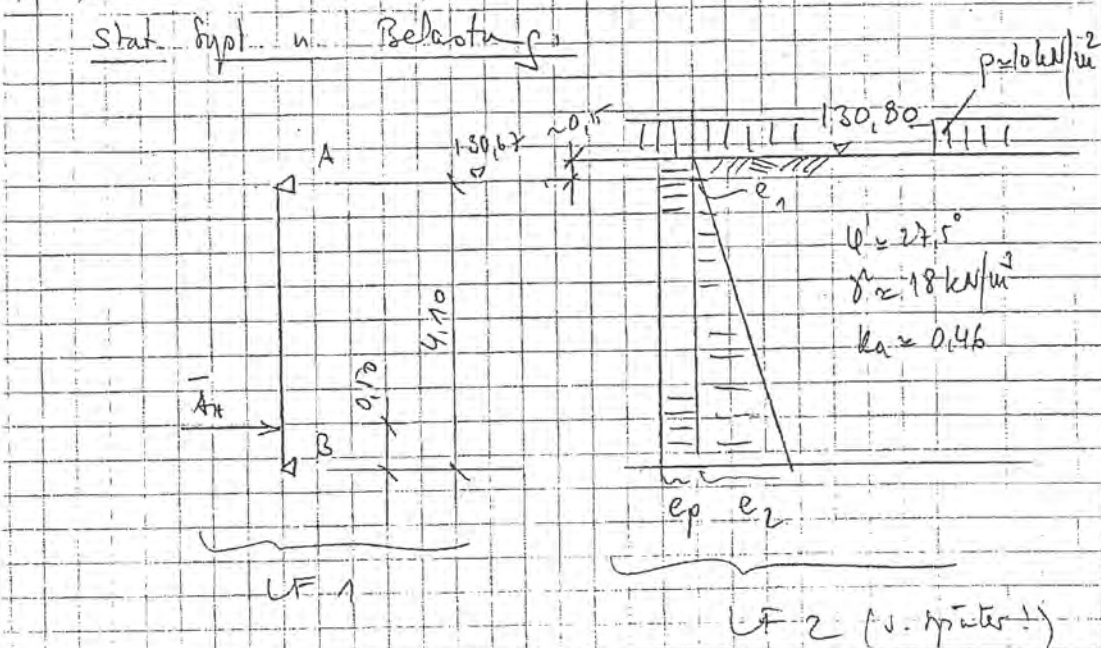 Stat. Syst. u. Belastung:
p≈10 kN/m²
130,80
130,67
~0,15
A
e₁
φ' ≈ 27,5°
γ ≈ 18 kN/m³
ka ≈ 0,46
4,10
0,50
A̅H
B
ep e₂
LF 1
LF 2 (s. später!)